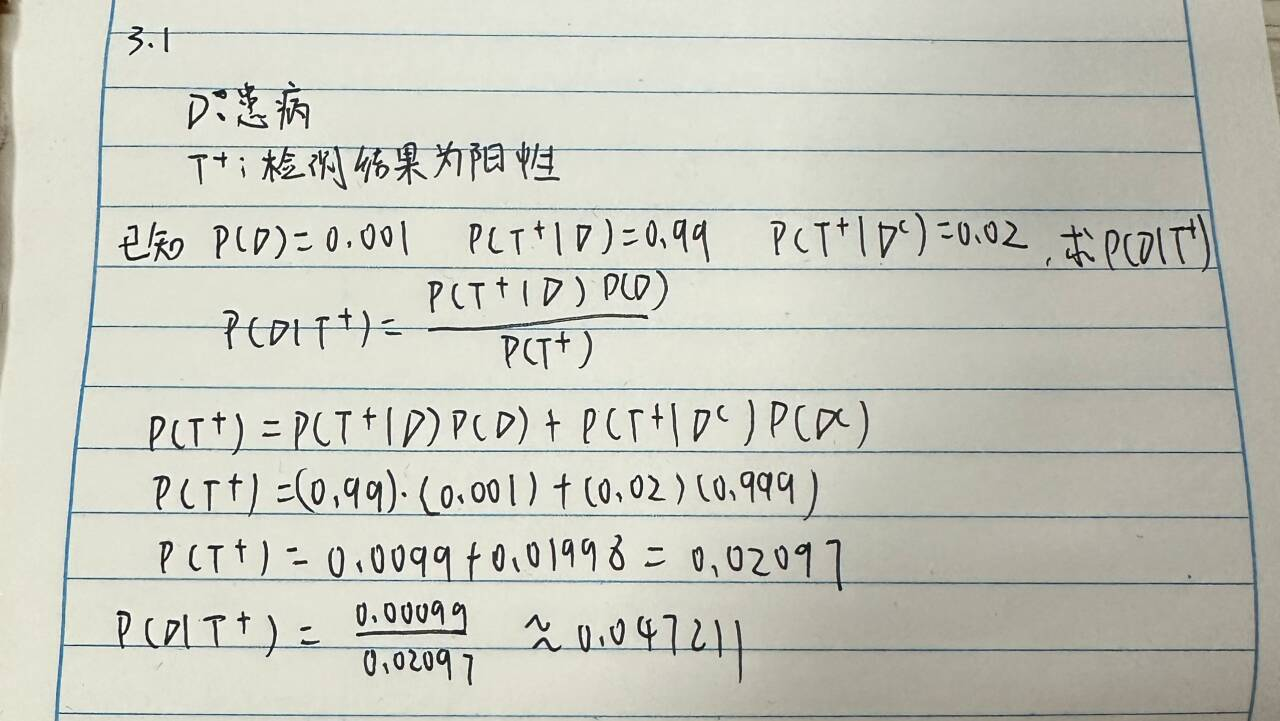 3.1
D:患病
T+:检测结果为阳性
已知 P(D)=0.001 P(T+|D)=0.99 P(T+|Dc)=0.02,求P(D|T+)
P(D|T+)= P(T+|D)P(D)
P(T+)
P(T+)=P(T+|D)P(D)+P(T+|Dc)P(Dc)
P(T+)=(0.99)·(0.001)+(0.02)(0.999)
P(T+)=0.0099+0.01998=0.02097
P(D|T+)= 0.00099 ≈0.047211
0.02097